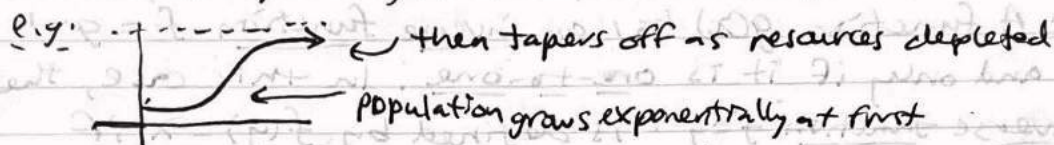 e.g.
then tapers off as resources depleted
population grows exponentially at first